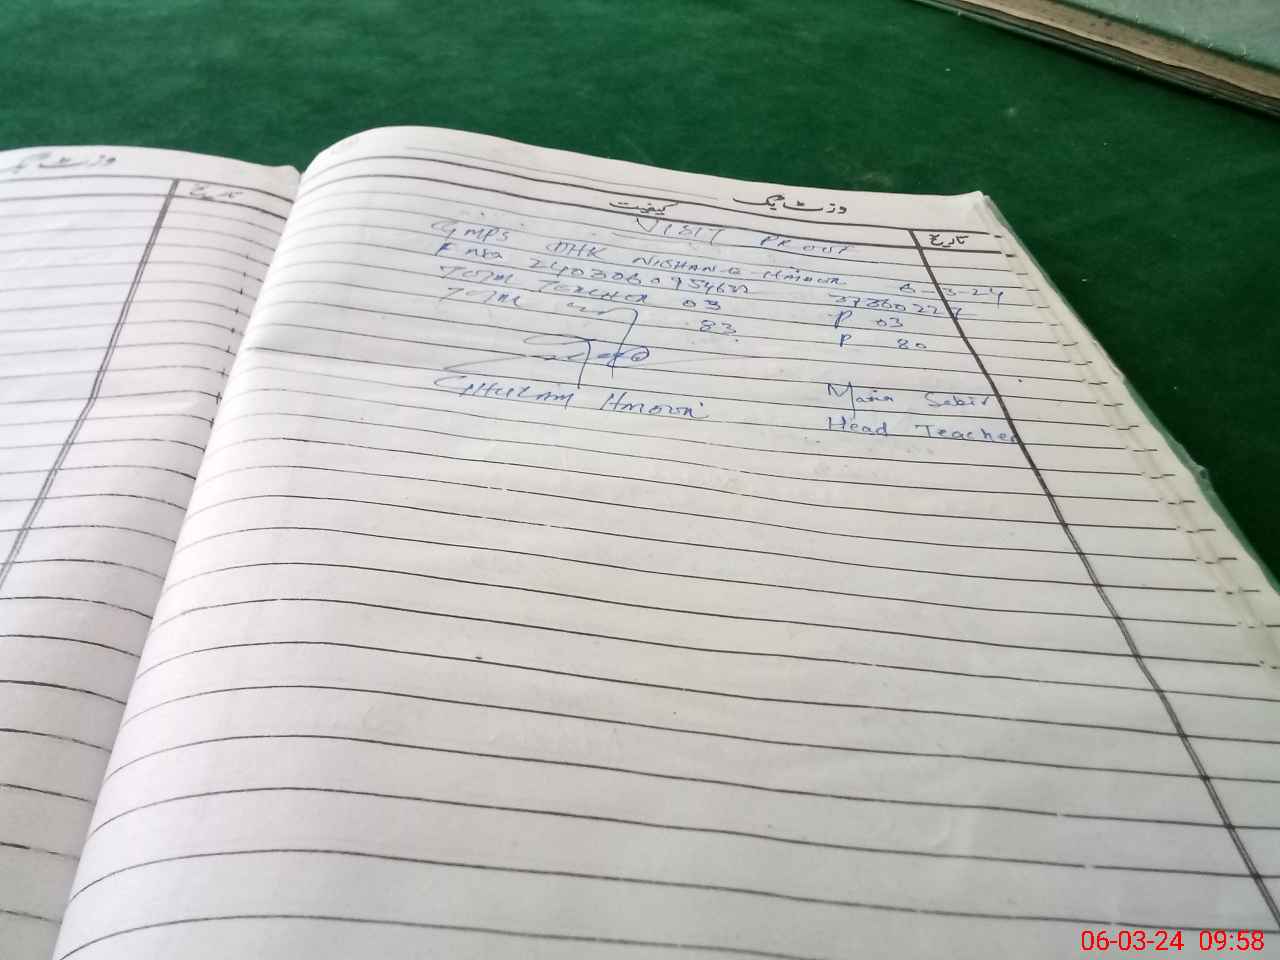 وزٹ بک
تاریخ
وزٹ بک
کیفیت
تاریخ
VISIT PROOF
GMPS CHK NISHAN-E-HAIDER 6-3-24
37330227
TOTAL TEACHER 03 P 03
TOTAL 83 P 80
GHULAM HAIDER
Maria Sabir
Head Teacher
06-03-24 09:58